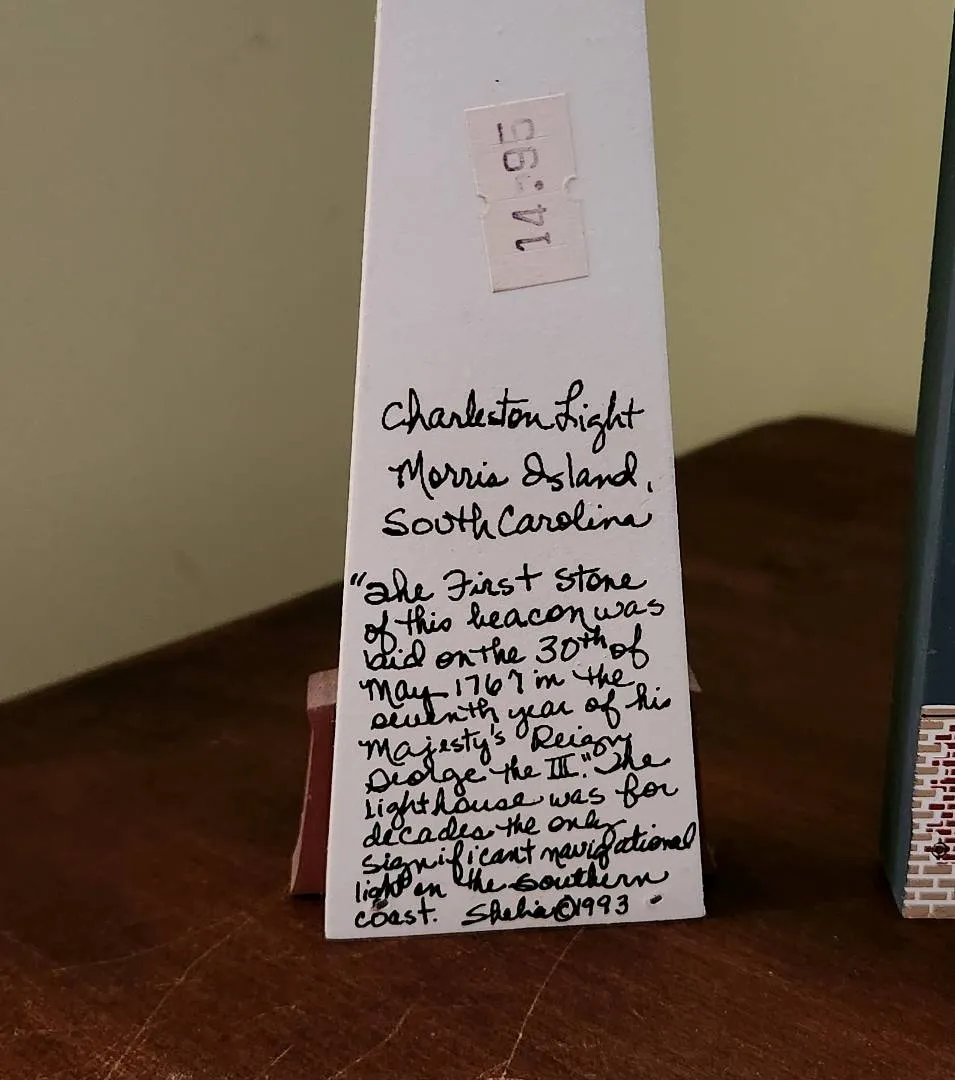 14.95
Charleston Light
Morris Island,
South Carolina
"The First Stone
of this beacon was
laid on the 30th of
May 1767 in the
seventh year of his
Majesty's Reign
George the III." The
Lighthouse was for
decades the only
significant navigational
light on the southern
coast. Shelia ©1993